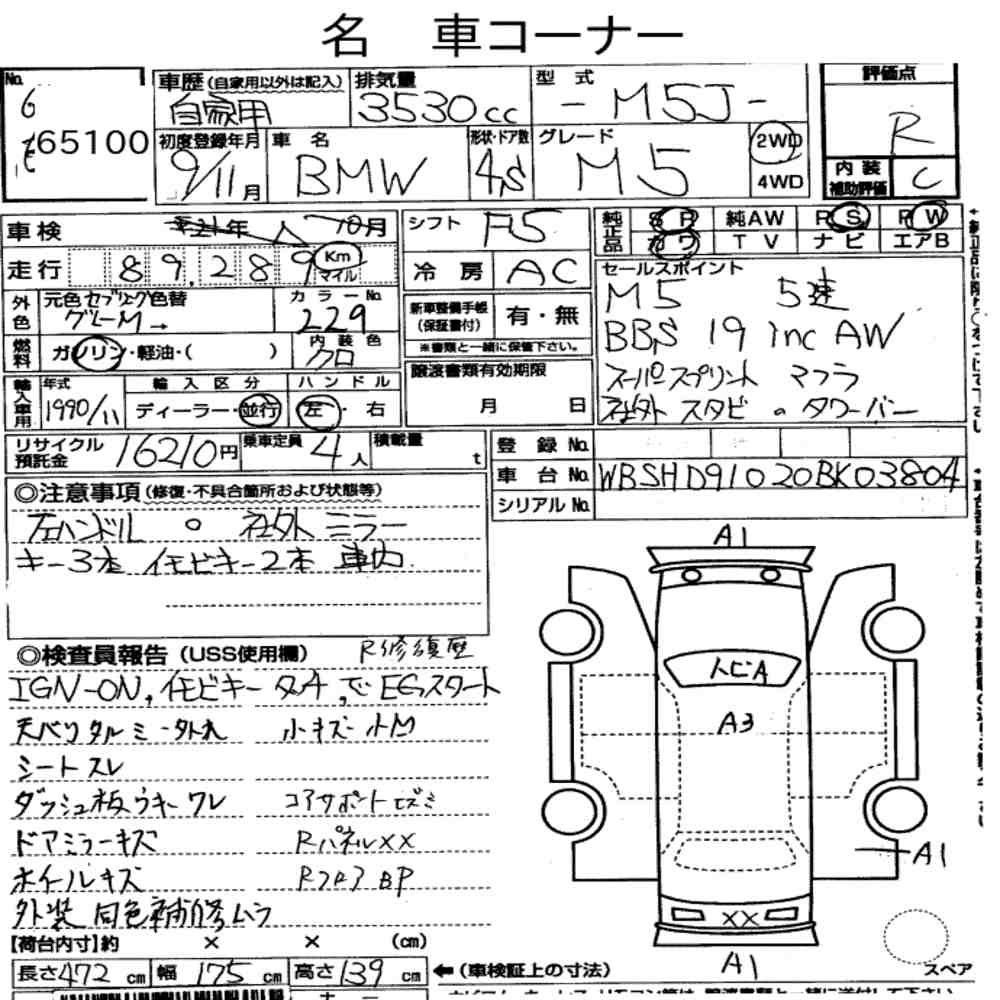 名 車コーナー
No. 65100
車歴(自家用以外は記入) 自家用 排気量 3530cc 型式 -M5J- 評価点 R
初度登録年月 9/11月 車名 BMW 形状・ドア数 4S グレード M5 2WD 4WD 内装補助評価 C
車検 21年 10月 シフト F5 純正品 SR 純AW PS PW
走行 89,289 Km マイル 冷房 AC カワ TV ナビ エアB
外色 元色 色替 グレーM→ カラーNo. 229 新車整備手帳(保証書付) 有・無 セールスポイント
※書類と一緒に保管下さい。
M5 5速
燃料 ガソリン・軽油・( ) 内装色 クロ
BBS 19 inc AW
輸入車用 年式 1990/11 輸入区分 ディーラー・並行 ハンドル 左・右 譲渡書類有効期限 月 日
スーパースプリント マフラ
社外 スタビ。タワーバー
リサイクル預託金 16210円 乗車定員 4人 積載量 t 登録No.
車台No. WBSHD91020BK03804
シリアルNo.
◎注意事項(修復・不具合箇所および状態等)
左ハンドル 。 社外ミラー
キー3本 イモビキー2本 車内
A1
◎検査員報告(USS使用欄) R修復歴
IGN-ON,イモビキー タッチ,でEGスタート
天バリタルミ・外れ 小キズ・小M
シートスレ
ダッシュ板ウキ・ワレ コアサポートヒズミ
ドアミラーキズ RパネルXX
ホイールキズ Rフロア BP
外装 同色補修ムラ
トビA
A3
A1
XX
A1
【荷台内寸】約 × × (cm)
長さ472cm 幅175cm 高さ139cm ←(車検証上の寸法) スペア